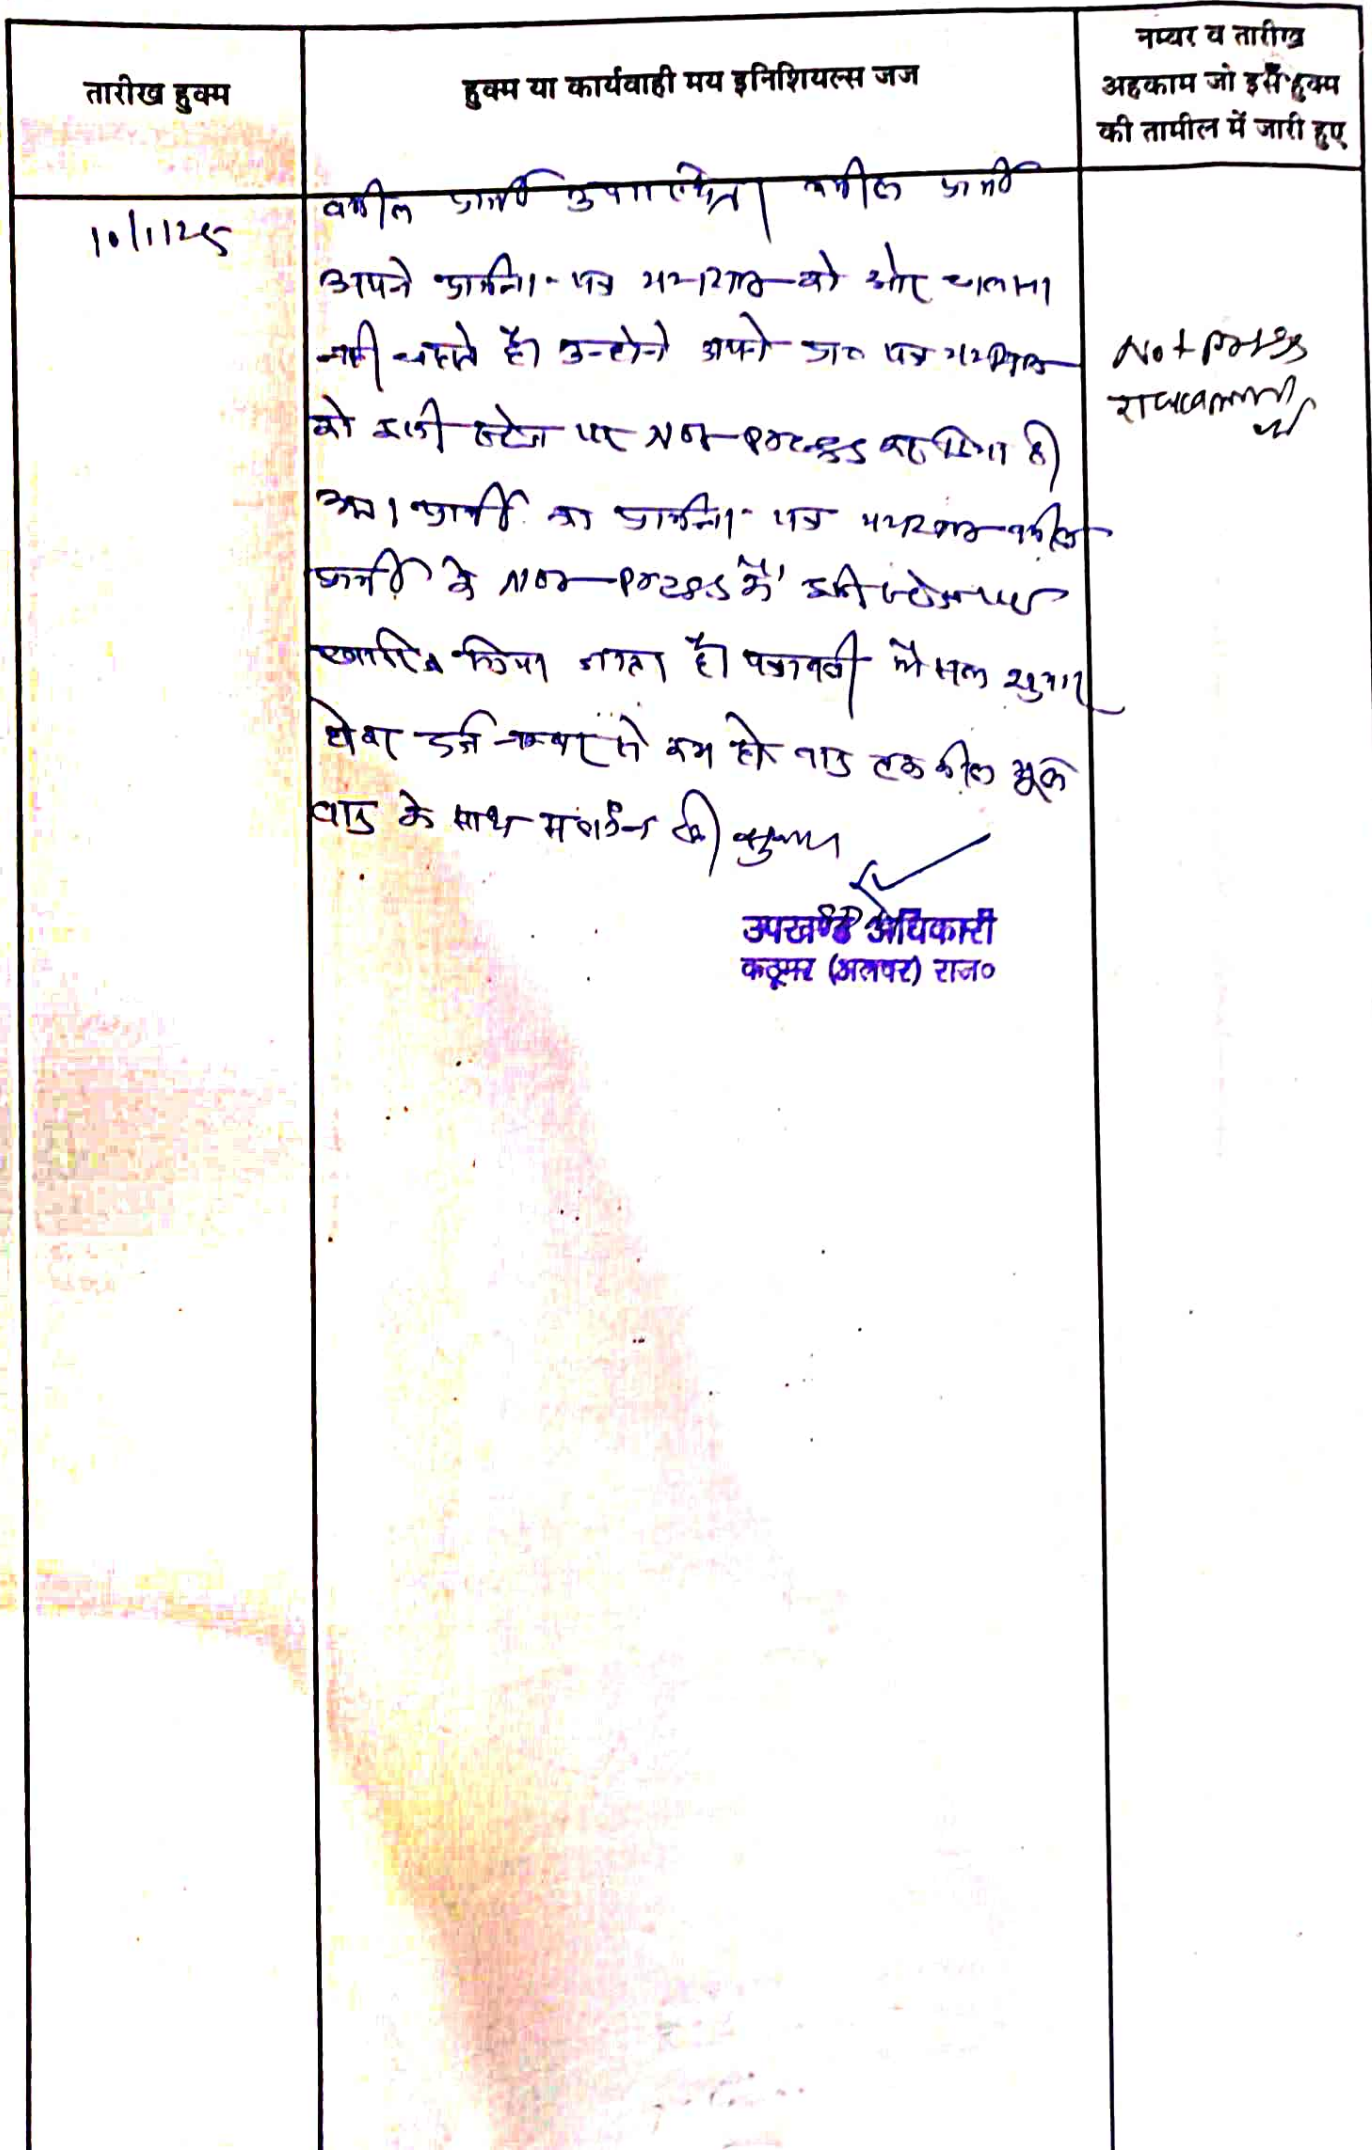 तारीख हुक्म
हुक्म या कार्यवाही मय इनिशियल्स जज
नम्बर व तारीख
अहकाम जो इस हुक्म
की तामील में जारी हुए
10/1/25
वकील प्रार्थी उपस्थित। वकील प्रार्थी
अपने प्रार्थना-पत्र को और चलाना
नहीं चाहते है। उन्होने अपने प्रा० पत्र
को इसी स्टेज पर Not-Pressed कर दिया है।
अतः प्रार्थी का प्रार्थना-पत्र वकील
प्रार्थी के Not-Pressed में इसी स्टेज पर
किया जाता है। पत्रावली फैसल शुमार
होकर दर्ज नम्बर से कम हो बाद तकमील मूल
वाद के साथ संलग्न हो।
Not press
उपखण्ड अधिकारी
कठूमर (अलवर) राज०